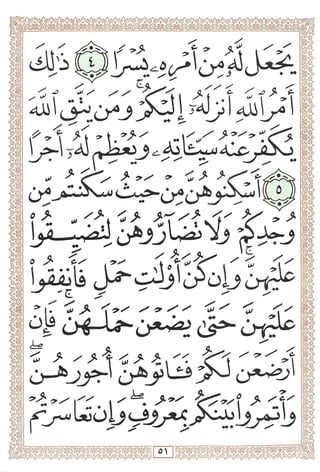 يَجْعَل لَّهُۥ مِنْ أَمْرِهِۦ يُسْرًا ٤ ذَٰلِكَ
أَمْرُ ٱللَّهِ أَنزَلَهُۥٓ إِلَيْكُمْ ۚ وَمَن يَتَّقِ ٱللَّهَ
يُكَفِّرْ عَنْهُ سَيِّـَٔاتِهِۦ وَيُعْظِمْ لَهُۥٓ أَجْرًا
٥ أَسْكِنُوهُنَّ مِنْ حَيْثُ سَكَنتُم مِّن
وُجْدِكُمْ وَلَا تُضَآرُّوهُنَّ لِتُضَيِّقُوا۟
عَلَيْهِنَّ ۚ وَإِن كُنَّ أُو۟لَٰتِ حَمْلٍ فَأَنفِقُوا۟
عَلَيْهِنَّ حَتَّىٰ يَضَعْنَ حَمْلَهُنَّ ۚ فَإِنْ
أَرْضَعْنَ لَكُمْ فَـَٔاتُوهُنَّ أُجُورَهُنَّ ۖ
وَأْتَمِرُوا۟ بَيْنَكُم بِمَعْرُوفٍ ۖ وَإِن تَعَاسَرْتُمْ
٥١